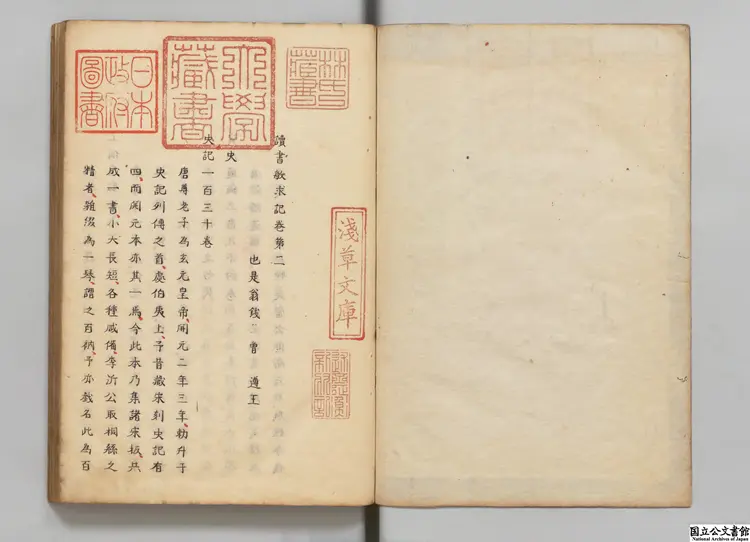 林氏藏書
淺草文庫
讀書敏求記卷第二
也是翁錢 曾 遵王
大學藏書
史
史記一百三十卷
唐尊老子為玄元皇帝開元二年三年勅升于
史記列傳之首處伯夷上予昔藏宋刻史記有
四而開元本亦其一焉今此本乃集諸宋板共
成一書小大長短各種咸備李沂公取桐絲之
精者雜綴為一琴謂之百衲予亦戲名此為百
日本政府圖書
国立公文書館
National Archives of Japan